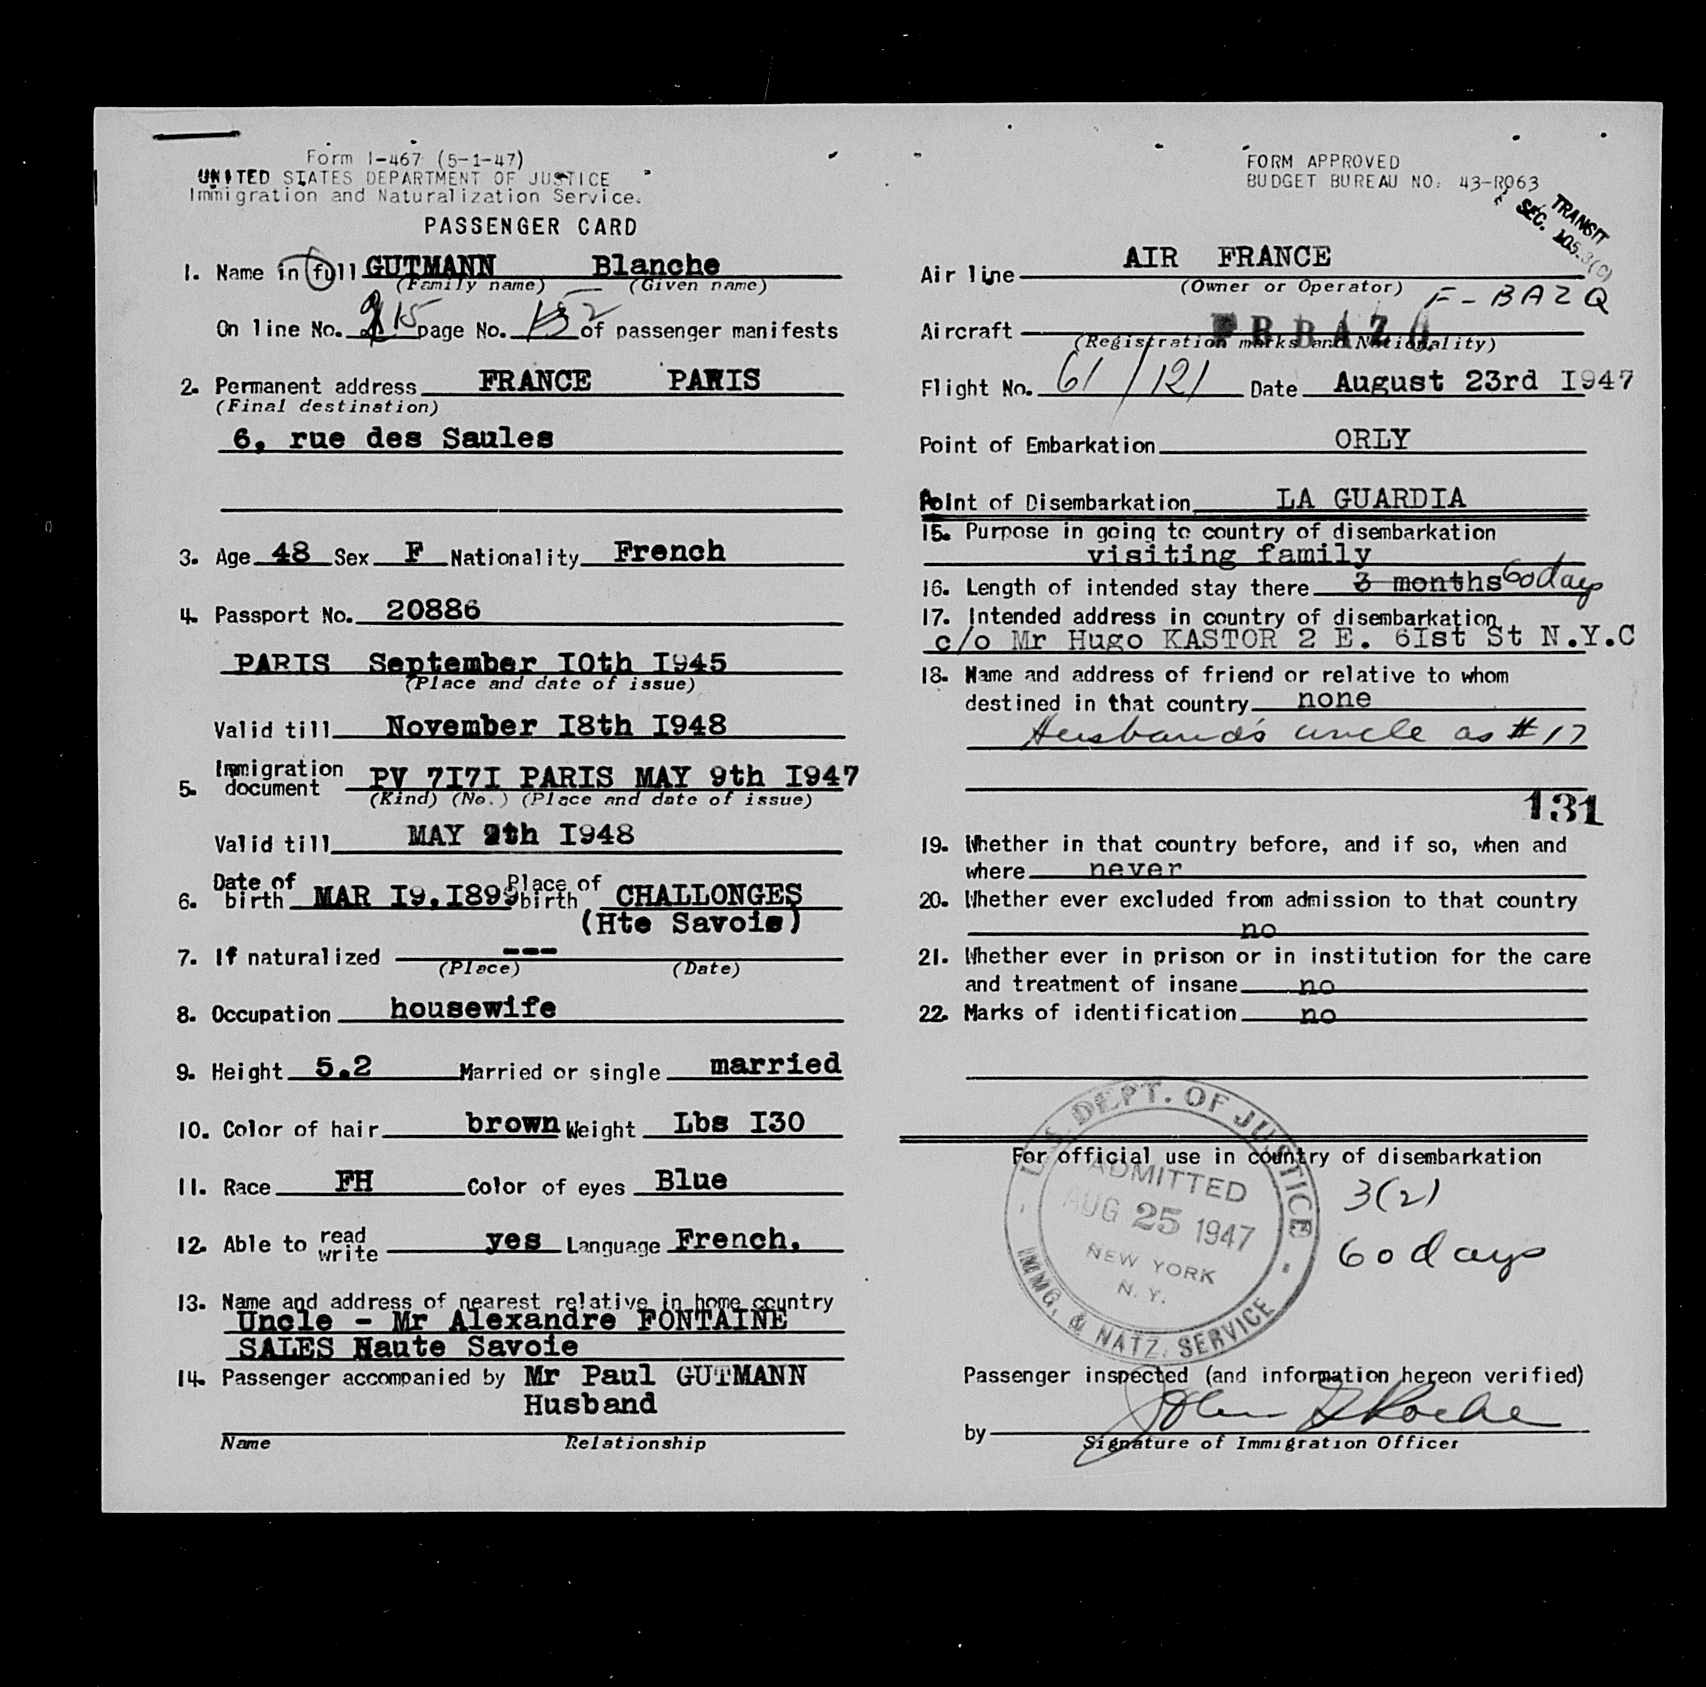 Form I-467 (5-1-47)
UNITED STATES DEPARTMENT OF JUSTICE
Immigration and Naturalization Service.
PASSENGER CARD
1. Name in full GUTMANN Blanche
(Family name) (Given name)
On line No. 15 page No. 2 of passenger manifests
2. Permanent address FRANCE PARIS
(Final destination)
6, rue des Saules
3. Age 48 Sex F Nationality French
4. Passport No. 20886
PARIS September IOth I945
(Place and date of issue)
Valid till November I8th I948
5. Immigration document PV 7I7I PARIS MAY 9th I947
(Kind) (No.) (Place and date of issue)
Valid till MAY 9th I948
6. Date of birth MAR I9.I899 Place of birth CHALLONGES
(Hte Savoie)
7. If naturalized ---
(Place) (Date)
8. Occupation housewife
9. Height 5.2 Married or single married
10. Color of hair brown Weight Lbs I30
11. Race FH Color of eyes Blue
12. Able to read write yes Language French.
13. Name and address of nearest relative in home country
Uncle - Mr Alexandre FONTAINE
SALES Haute Savoie
14. Passenger accompanied by Mr Paul GUTMANN
Husband
Name Relationship
FORM APPROVED
BUDGET BUREAU NO. 43-R063
TRANSIT
SEC. 105.3(c)
Air line AIR FRANCE
(Owner or Operator)
F-BAZQ
Aircraft
(Registration marks and Nationality)
Flight No. 61/121 Date August 23rd I947
Point of Embarkation ORLY
Point of Disembarkation LA GUARDIA
15. Purpose in going to country of disembarkation
visiting family
16. Length of intended stay there 3 months 60 days
17. Intended address in country of disembarkation
c/o Mr Hugo KASTOR 2 E. 6Ist St N.Y.C
18. Name and address of friend or relative to whom
destined in that country none
Husband's uncle as # 17
131
19. Whether in that country before, and if so, when and
where never
20. Whether ever excluded from admission to that country
no
21. Whether ever in prison or in institution for the care
and treatment of insane no
22. Marks of identification no
For official use in country of disembarkation
U.S. DEPT. OF JUSTICE
ADMITTED
AUG 25 1947
NEW YORK
N. Y.
IMMG. & NATZ. SERVICE
3(2)
60 days
Passenger inspected (and information hereon verified)
by John Roche
Signature of Immigration Officer